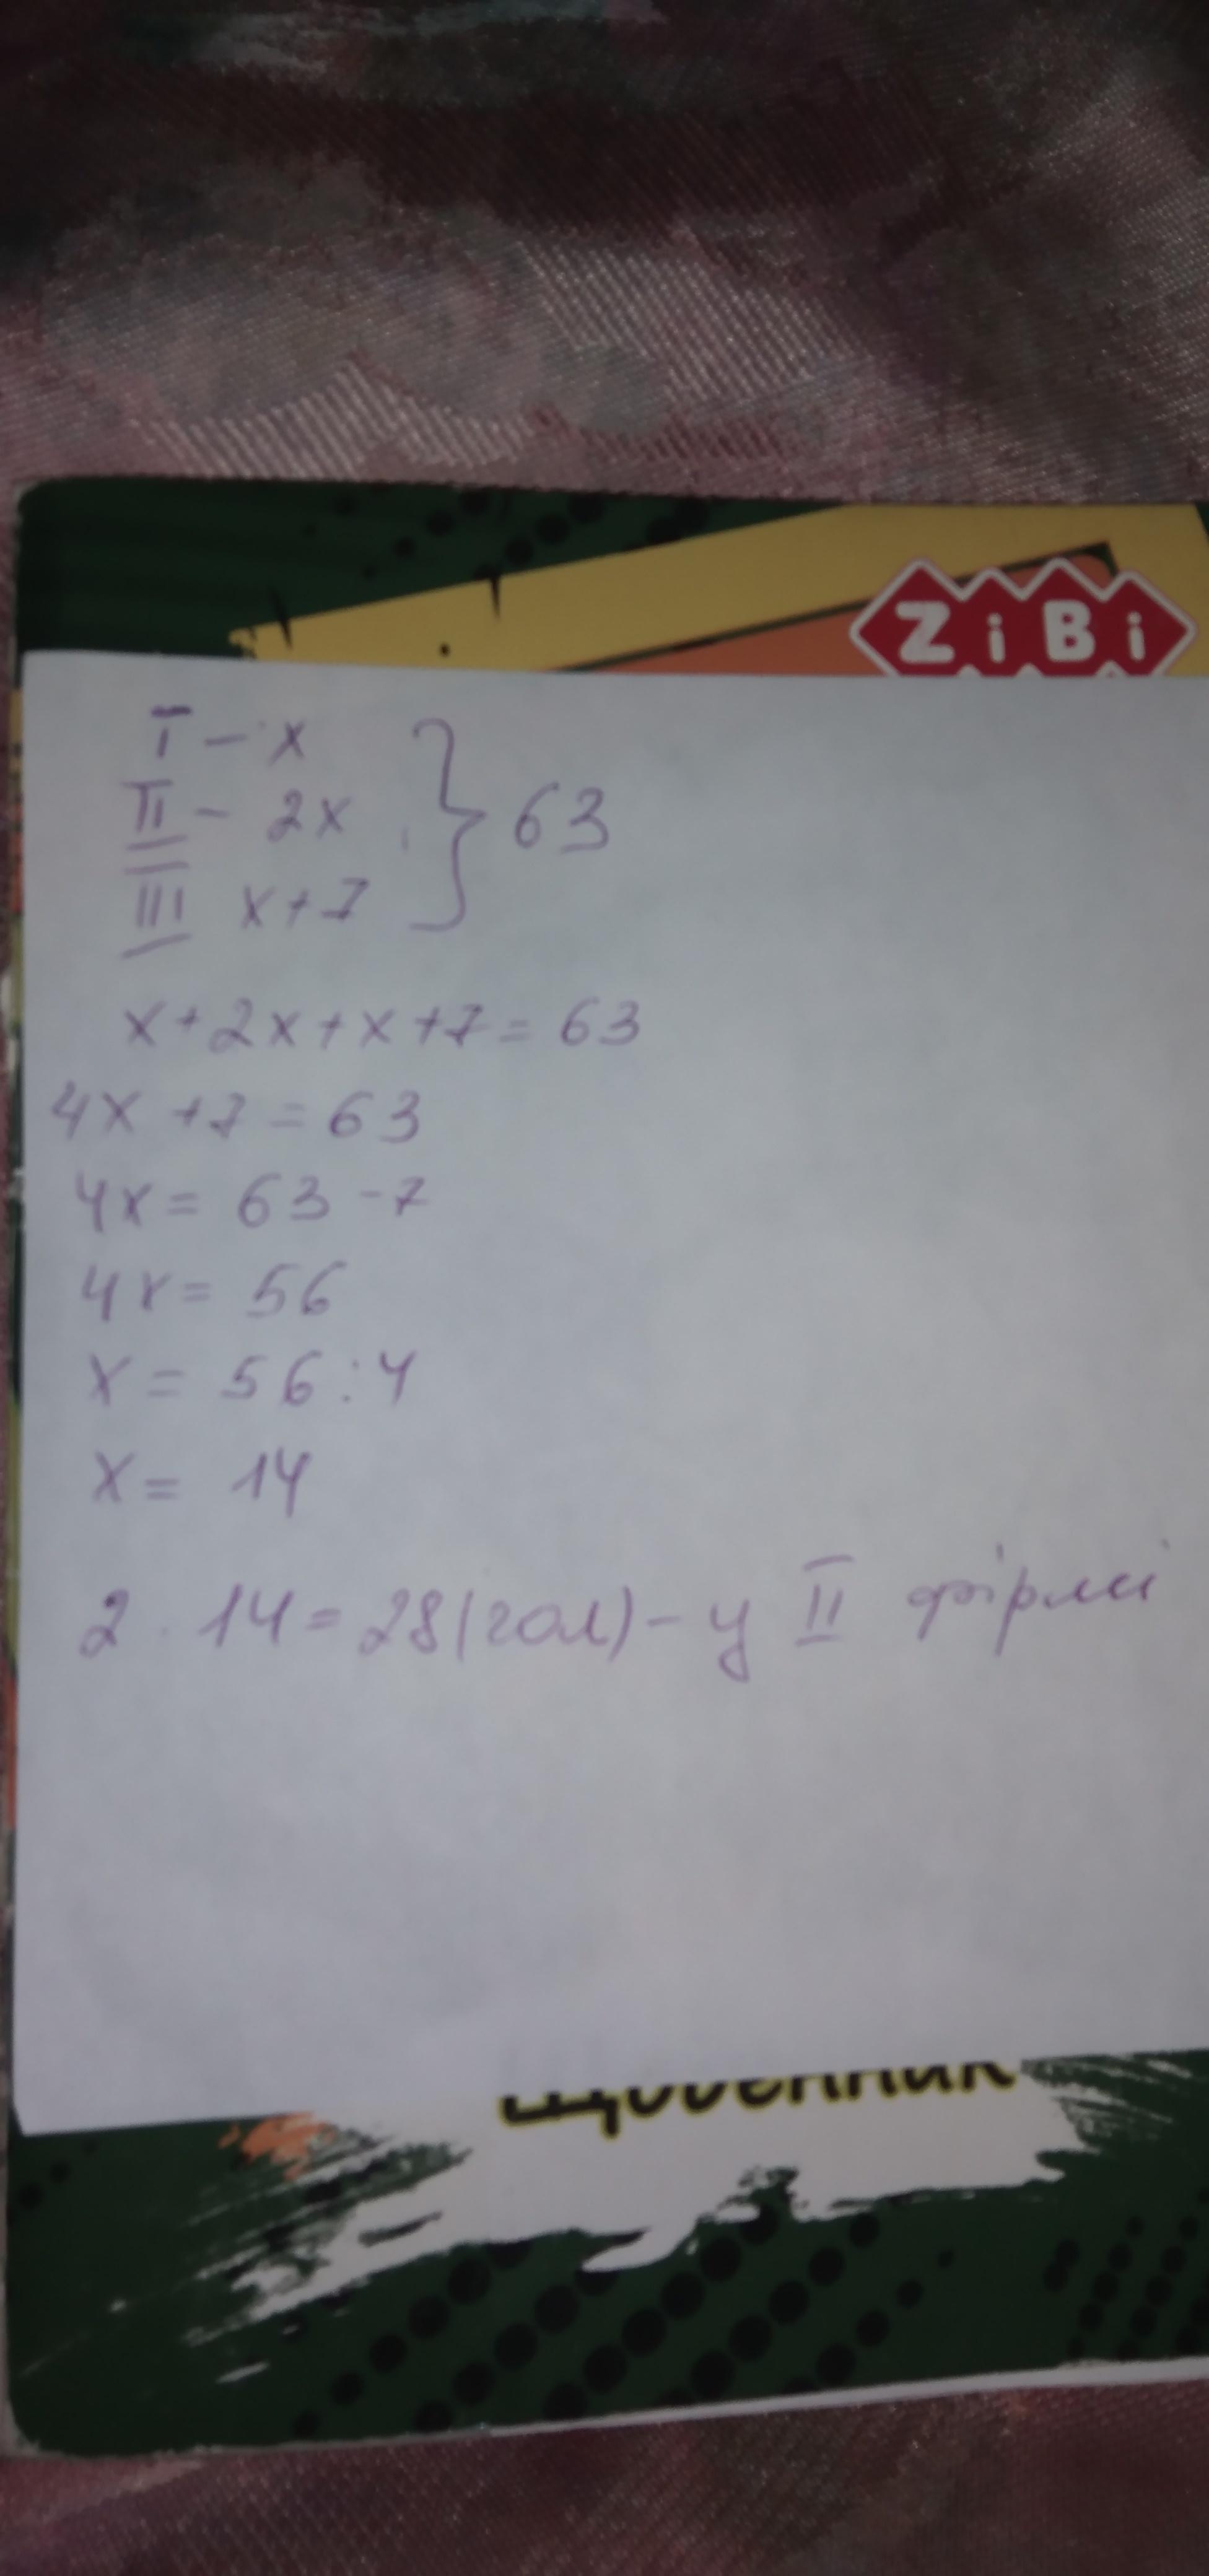 ZiBi
I - x
II - 2x } 63
III x+7
x+2x+x+7=63
4x+7=63
4x=63-7
4x=56
x=56:4
x=14
2·14=28(гол)-у II фірмі
Щоденник